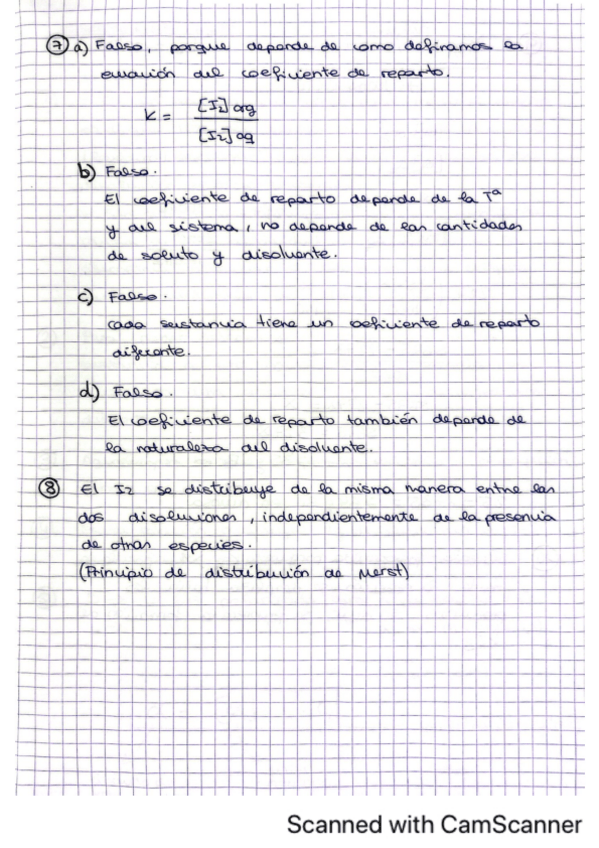 ⑦ a) Falso, porque depende de como definamos la
ecuación del coeficiente de reparto.
K = [I₂] org / [I₂] aq
b) Falso.
El coeficiente de reparto depende de la Tª
y del sistema, no depende de las cantidades
de soluto y disolvente.
c) Falso.
cada sustancia tiene un coeficiente de reparto
diferente.
d) Falso.
El coeficiente de reparto también depende de
la naturaleza del disolvente.
⑧ El I2 se distribuye de la misma manera entre las
dos disoluciones, independientemente de la presencia
de otras especies.
(Principio de distribución de Nerst)
Scanned with CamScanner